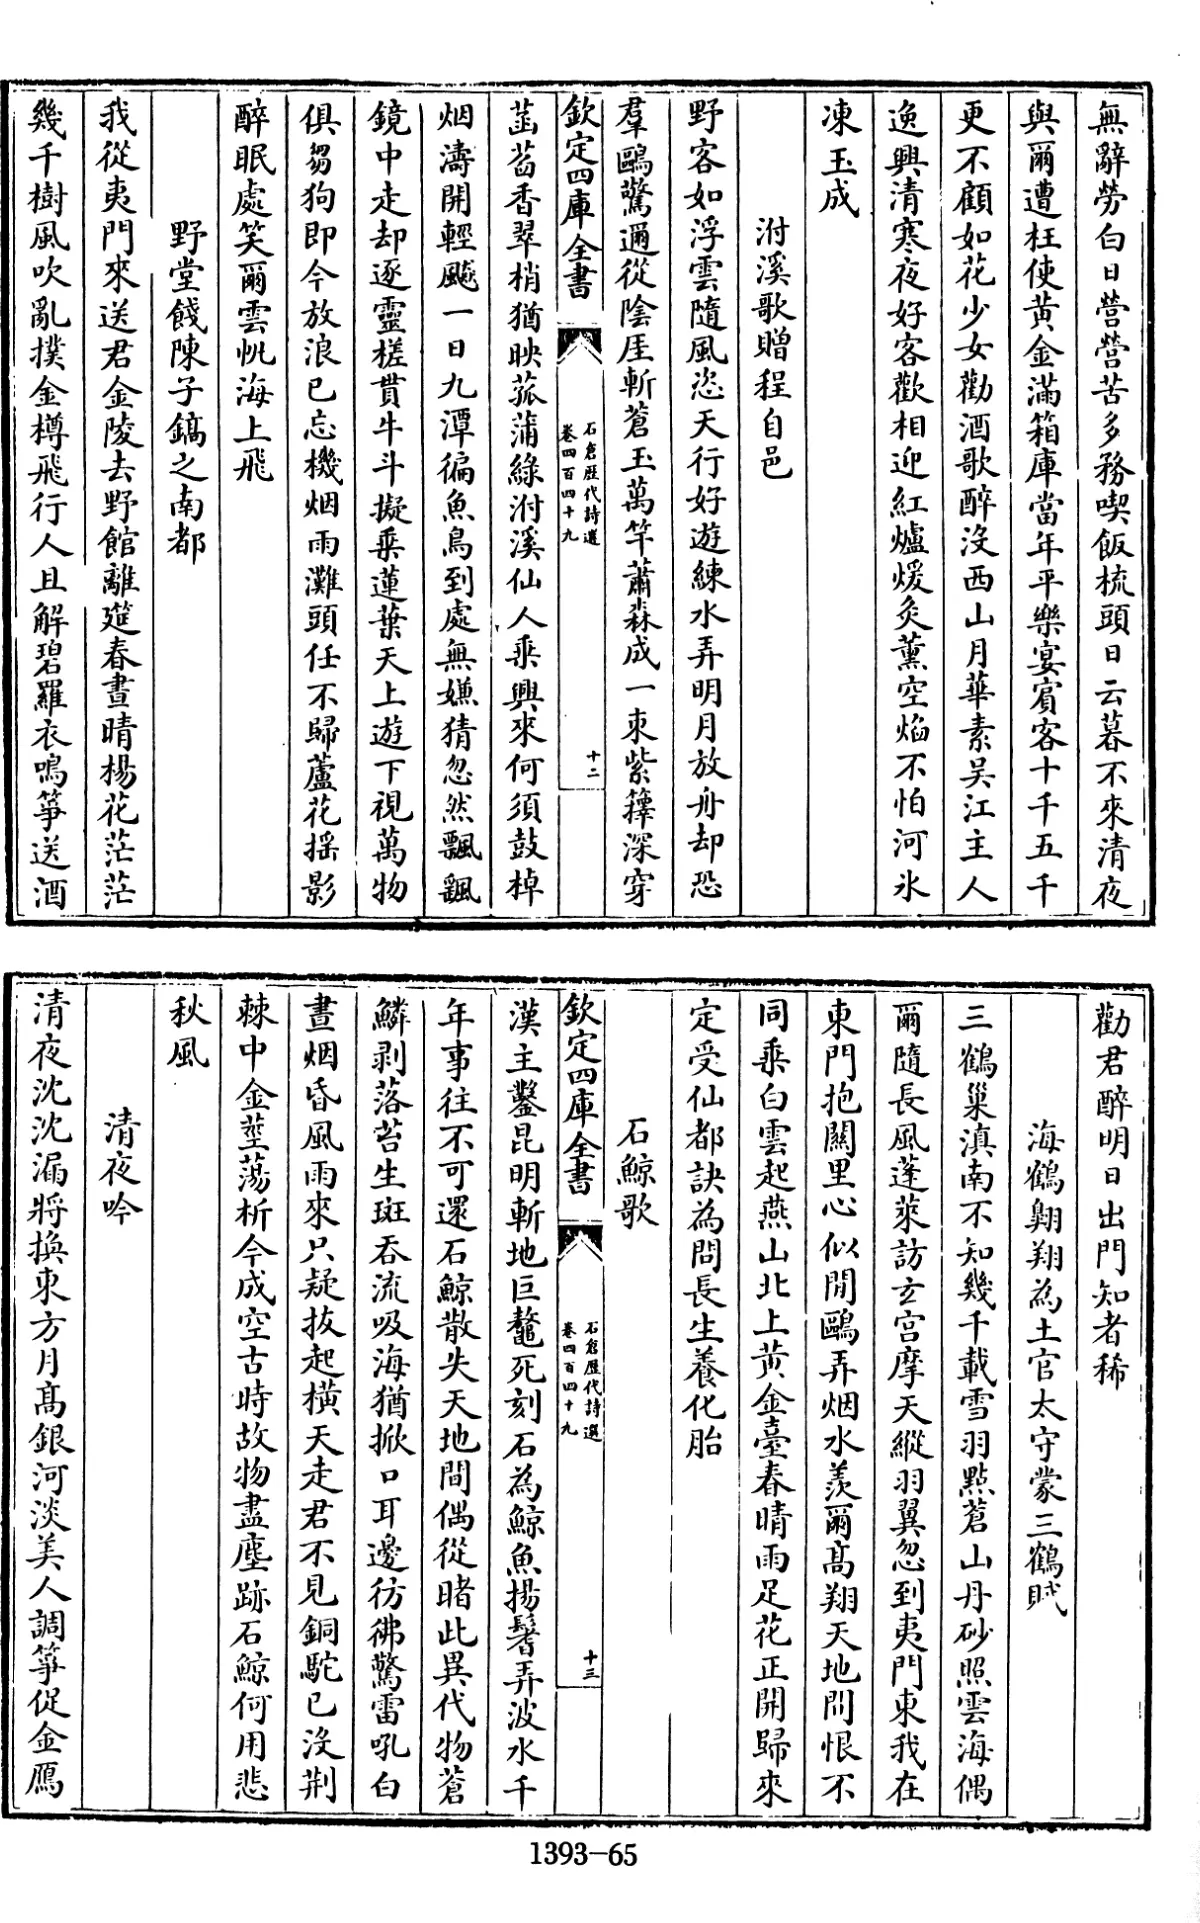 無辭勞白日營營苦多務喫飯梳頭日云暮不來清夜
與爾遭枉使黄金滿箱庫當年平樂宴賔客十千五千
更不顧如花少女勸酒歌醉沒西山月華素吴江主人
逸興清寒夜好客歡相迎紅爐煖炙薰空焰不怕河氷
凍玉成
泭溪歌贈程自邑
野客如浮雲隨風恣天行好遊練水弄明月放舟却恐
羣鷗驚邇從陰厓斬蒼玉萬竿蕭森成一束紫籜深穿
欽定四庫全書
石倉歴代詩選
卷四百四十九
十二
菡萏香翠梢猶映菰蒲綠泭溪仙人乘興來何須鼓棹
烟濤開輕颷一日九潭徧魚鳥到處無嫌猜忽然飄飄
鏡中走却逐靈槎貫牛斗擬乘蓮葉天上遊下視萬物
俱芻狗即今放浪已忘機烟雨灘頭任不歸蘆花揺影
醉眠處笑爾雲帆海上飛
野堂餞陳子鎬之南都
我從夷門來送君金陵去野館離筵春晝晴楊花茫茫
幾千樹風吹亂撲金樽飛行人且解碧羅衣鳴筝送酒
勸君醉明日出門知者稀
海鶴翺翔為土官太守蒙三鶴賦
三鶴巢滇南不知幾千載雪羽㸃蒼山丹砂照雲海偶
爾隨長風蓬萊訪玄宫摩天縱羽翼忽到夷門東我在
東門抱關里心似閒鷗弄烟水羡爾髙翔天地間恨不
同乘白雲起燕山北上黄金臺春晴雨足花正開歸來
定受仙都訣為問長生養化胎
石鯨歌
欽定四庫全書
石倉歴代詩選
卷四百四十九
十三
漢主鑿昆明斬地巨鼇死刻石為鯨魚揚鬐弄波水千
年事往不可還石鯨散失天地間偶從睹此異代物蒼
鱗剥落苔生斑吞流吸海猶掀口耳邊彷彿驚雷吼白
晝烟昏風雨來只疑拔起横天走君不見銅駝已沒荆
棘中金莖蕩析今成空古時故物盡塵跡石鯨何用悲
秋風
清夜吟
清夜沈沈漏將換東方月髙銀河淡美人調筝促金鴈
1393-65